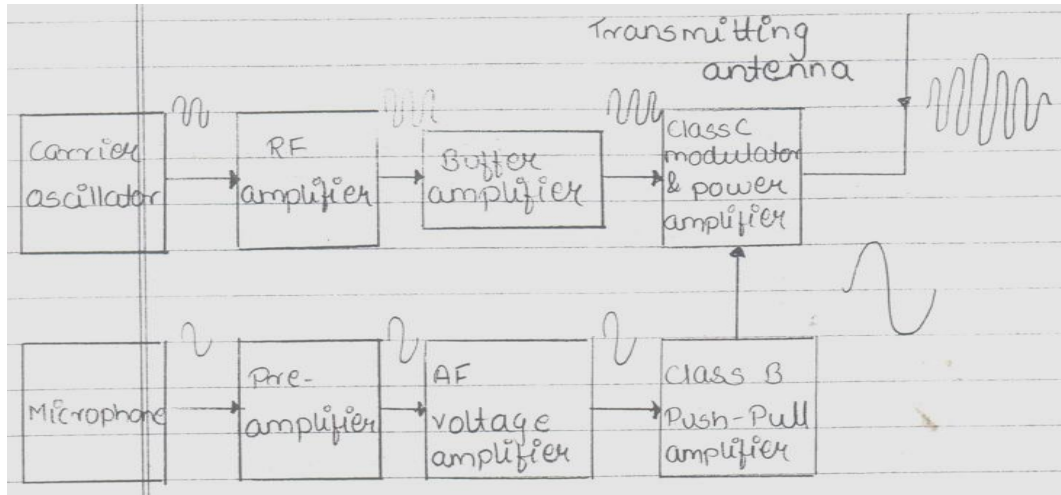 Transmitting
antenna
Carrier
oscillator
RF
amplifier
Buffer
amplifier
Class C
modulator
& power
amplifier
Microphone
Pre-
amplifier
AF
voltage
amplifier
Class B
Push-Pull
amplifier